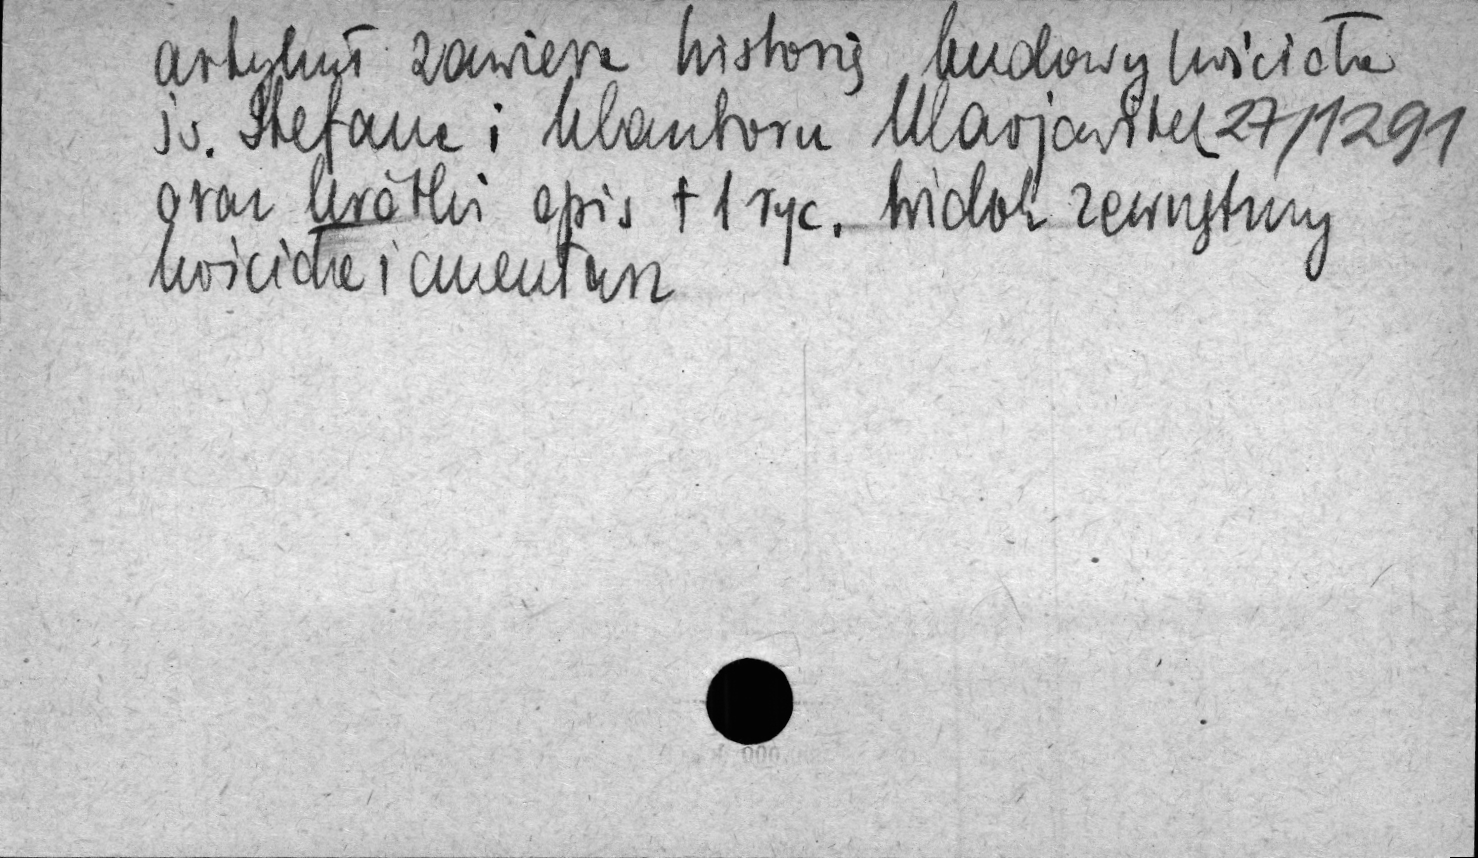 artykuł zawiera historię budowy kościoła
św. Stefana i klasztoru Marjawitek 27/1291
oraz krótki opis + 1 ryc. widok zewnętrzny
kościoła i cmentarz
000